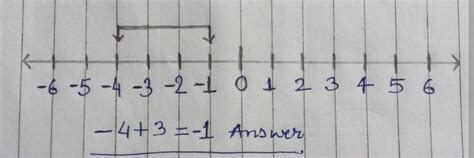 -6 -5 -4 -3 -2 -1 0 1 2 3 4 5 6
-4+3=-1 Answer